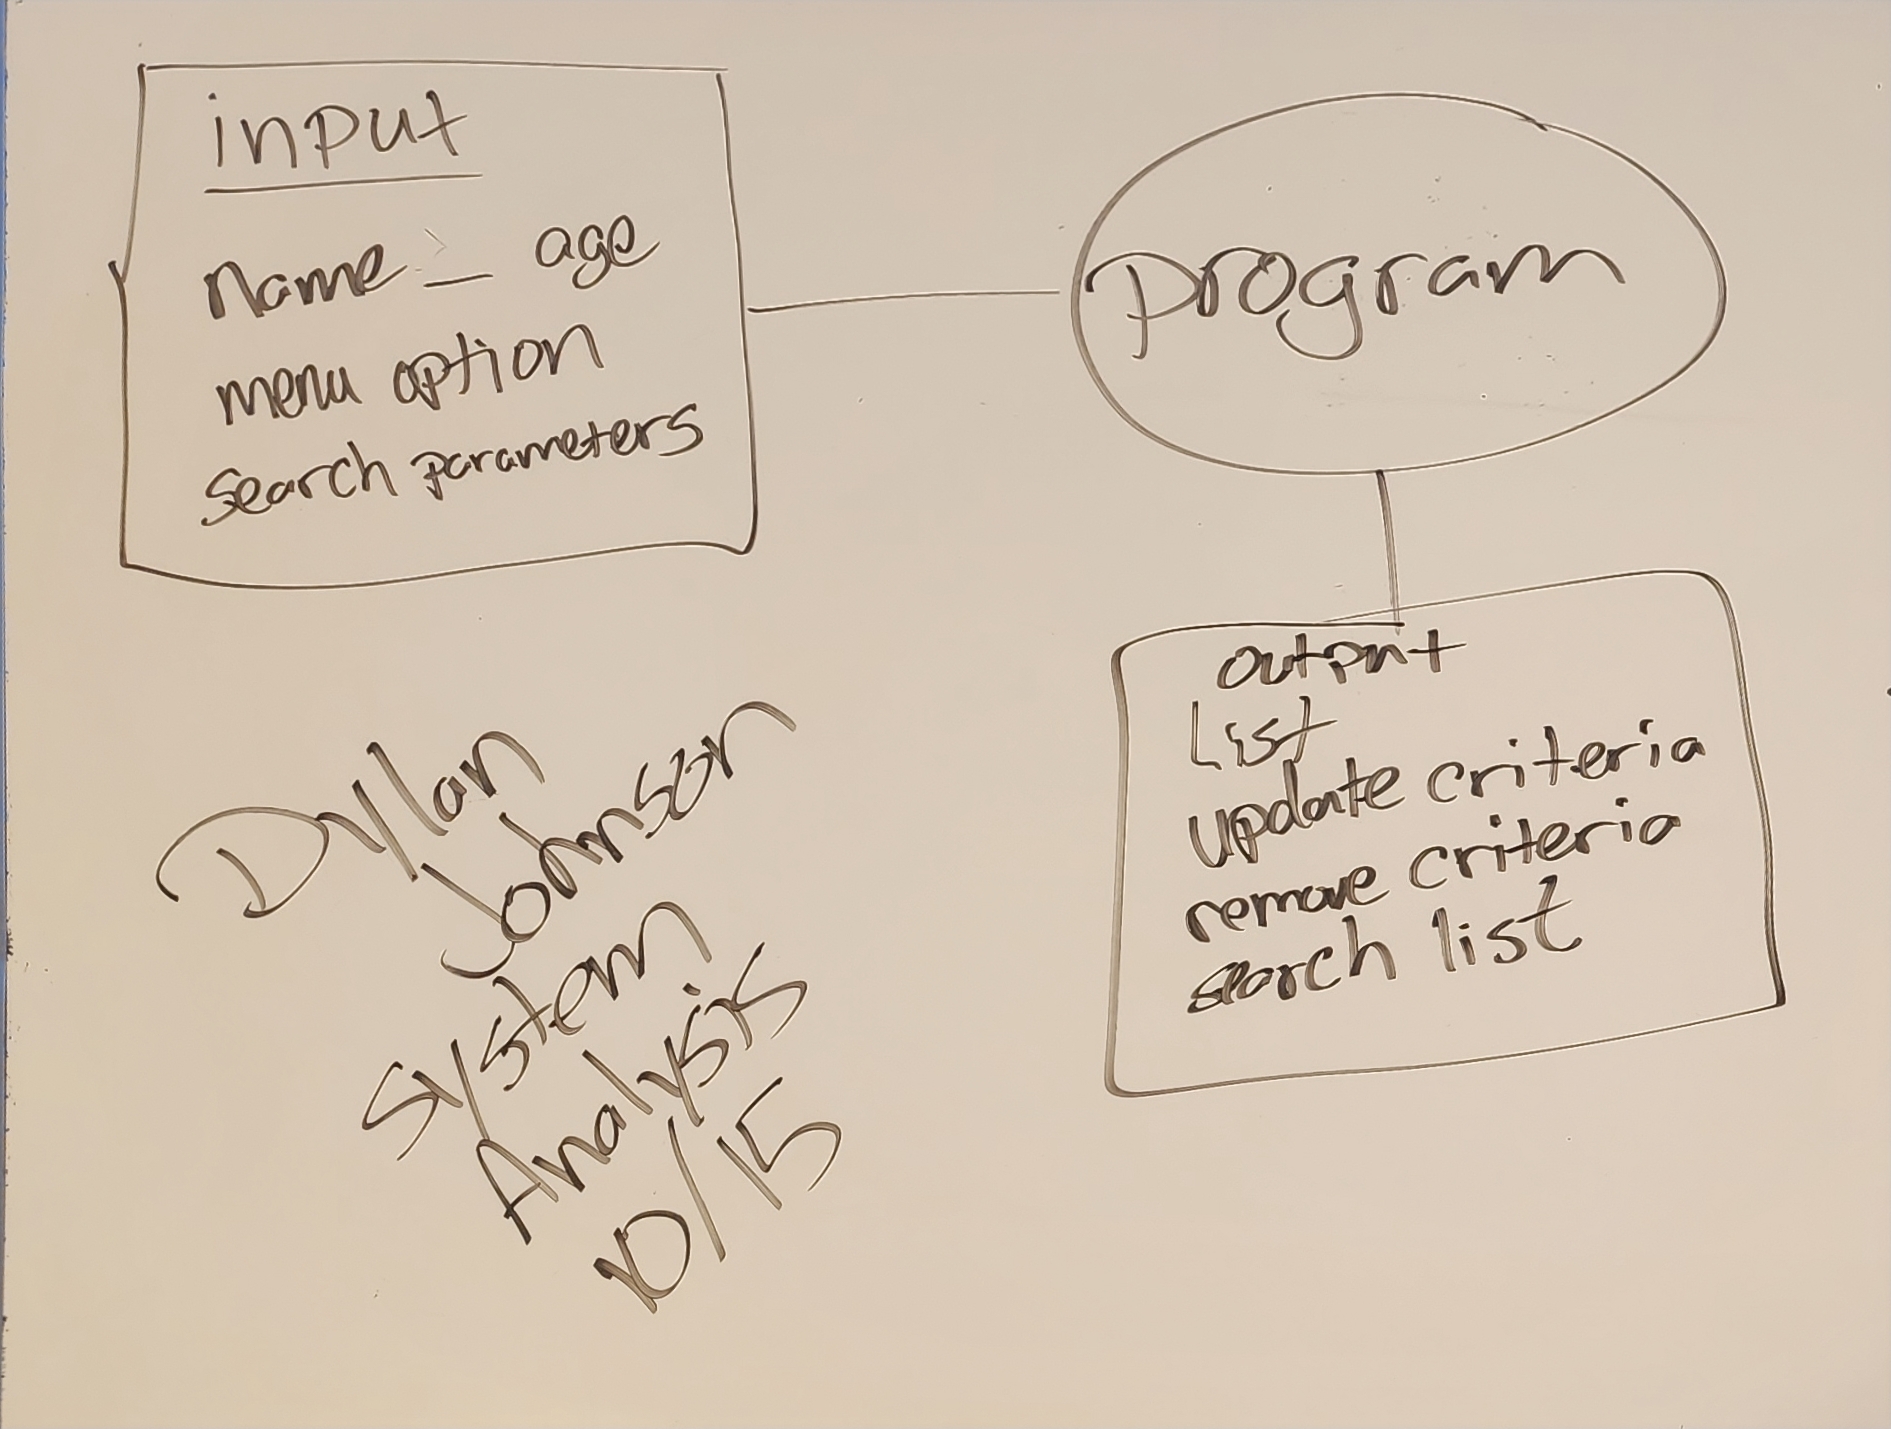 input
name _ age
menu option
search parameters
program
output
List
update criteria
remove criteria
search list
Dylan
Johnson
System
Analysis
10/15